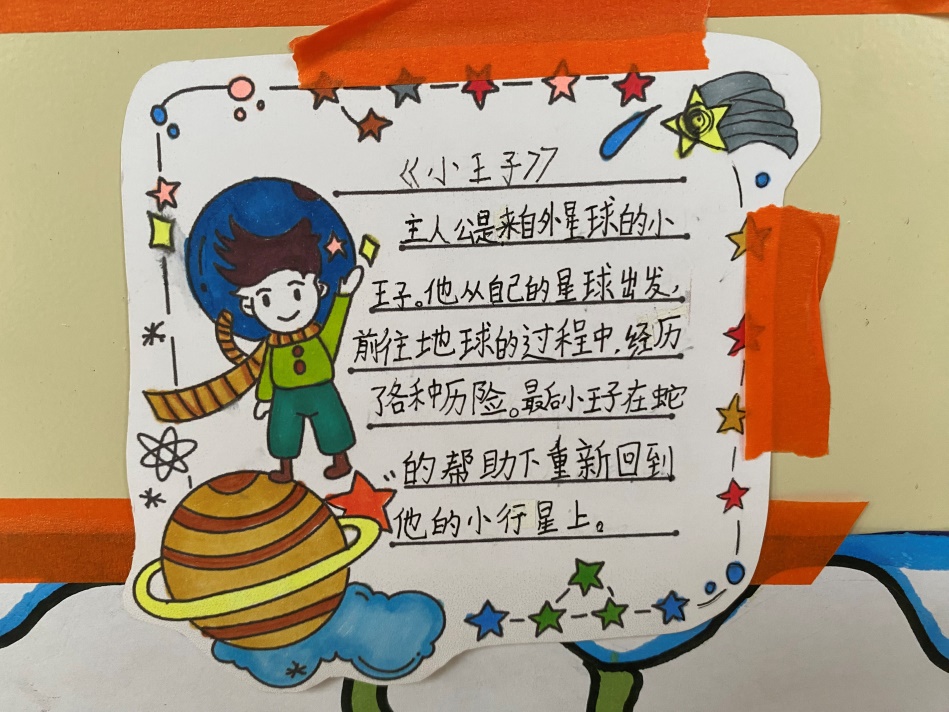 《小王子》
主人公是来自外星球的小
王子。他从自己的星球出发,
前往地球的过程中,经历
了各种历险。最后小王子在蛇
的帮助下重新回到
他的小行星上。